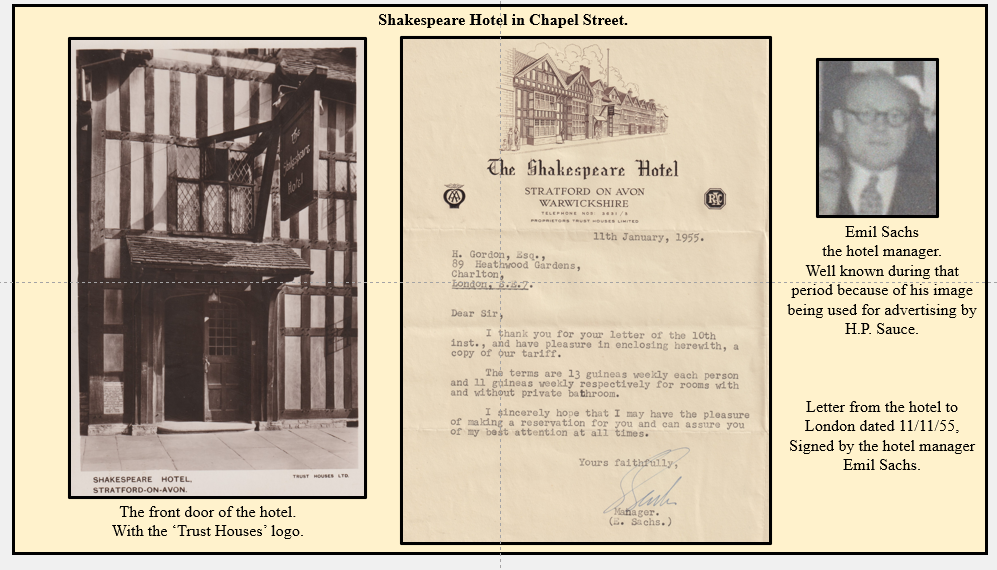 Shakespeare Hotel in Chapel Street.
The
Shakespeare
Hotel
SHAKESPEARE HOTEL,
STRATFORD-ON-AVON.
TRUST HOUSES LTD.
The front door of the hotel.
With the ‘Trust Houses’ logo.
The Shakespeare Hotel
AA
STRATFORD ON AVON
WARWICKSHIRE
RAC
TELEPHONE NOS:
PROPRIETORS TRUST HOUSES LIMITED
11th January, 1955.
H. Gordon, Esq.,
89 Heathwood Gardens,
Charlton,
London, S.E.7.
Dear Sir,
I thank you for your letter of the 10th
inst., and have pleasure in enclosing herewith, a
copy of our tariff.
The terms are 13 guineas weekly each person
and 11 guineas weekly respectively for rooms with
and without private bathroom.
I sincerely hope that I may have the pleasure
of making a reservation for you and can assure you
of my best attention at all times.
Yours faithfully,
E Sachs
Manager.
(E. Sachs.)
Emil Sachs
the hotel manager.
Well known during that
period because of his image
being used for advertising by
H.P. Sauce.
Letter from the hotel to
London dated 11/11/55,
Signed by the hotel manager
Emil Sachs.